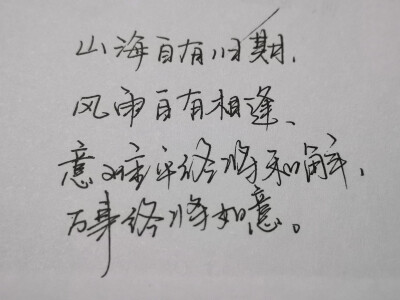 山海自有归期，
风雨自有相逢、
意难平终将和解，
万事终将如意。